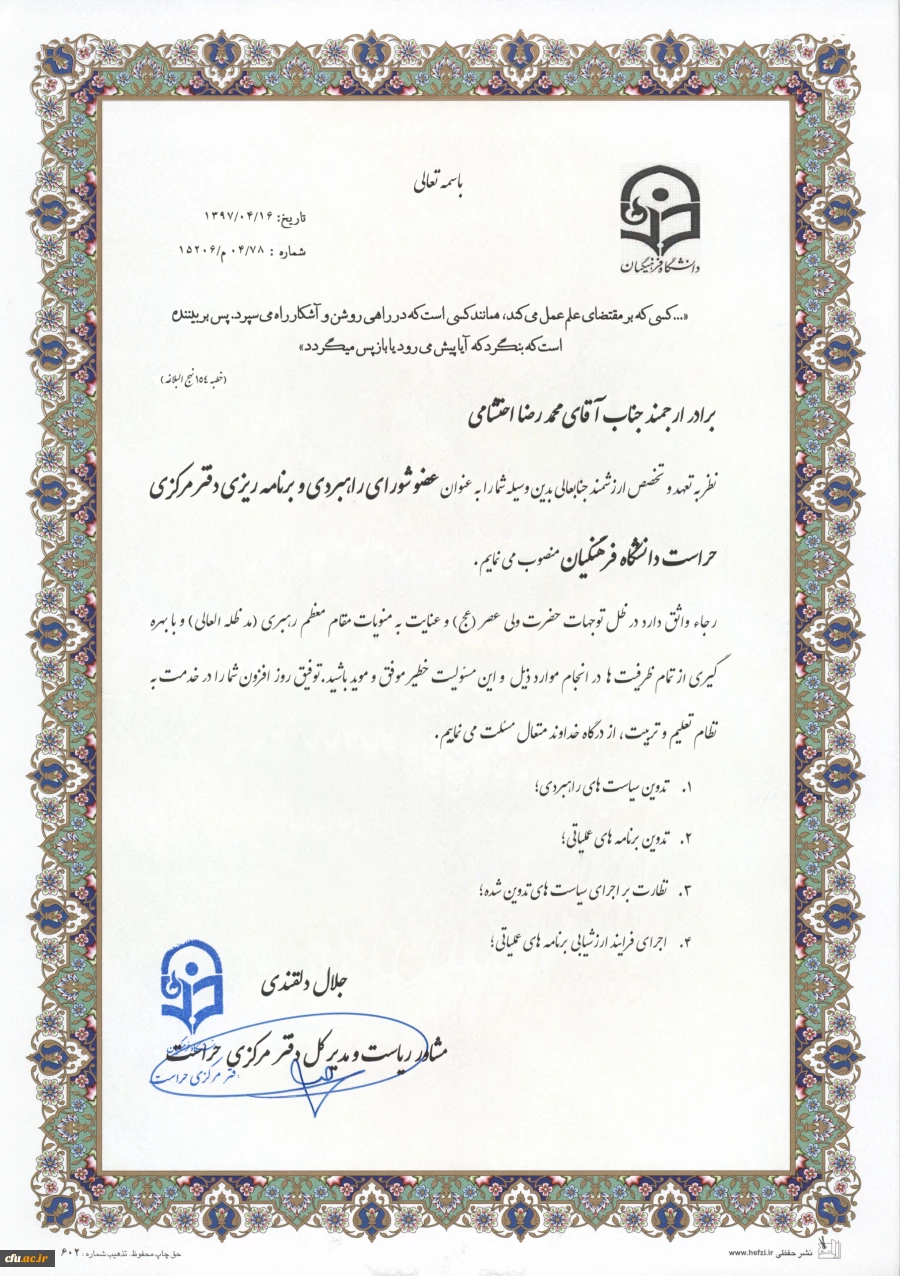 باسمه تعالی
دانشگاه فرهنگیان
تاریخ: ۱۳۹۷/۰۴/۱۶
شماره : ۰۴/۷۸ م/۱۵۲۰۶
«...کسی که بر مقتضای علم عمل می کند، همانند کسی است که در راهی روشن و آشکار راه می سپرد. پس بر بیننده
است که بنگرد که آیا پیش می رود یا باز پس میگردد»
(خطبه ۱۵۴ نهج البلاغه)
برادر ارجمند جناب آقای محمد رضا احتشامی
نظر به تعهد و تخصص ارزشمند جنابعالی بدین وسیله شما را به عنوان عضو شورای راهبردی و برنامه ریزی دفتر مرکزی
حراست دانشگاه فرهنگیان منصوب می نمایم.
رجاء واثق دارد در ظل توجهات حضرت ولی عصر (عج) و عنایت به منویات مقام معظم رهبری (مد ظله العالی) و با بهره
گیری از تمام ظرفیت ها در انجام موارد ذیل و این مسئولیت خطیر موفق و موید باشید. توفیق روز افزون شما را در خدمت به
نظام تعلیم و تربیت، از درگاه خداوند متعال مسئلت می نماییم.
۱. تدوین سیاست های راهبردی؛
۲. تدوین برنامه های عملیاتی؛
۳. نظارت بر اجرای سیاست های تدوین شده؛
۴. اجرای فرایند ارزشیابی برنامه های عملیاتی؛
جلال دلقندی
مشاور ریاست و مدیر کل دفتر مرکزی حراست
دفتر مرکزی حراست
نشر حفظی www.hefzi.ir
حق چاپ محفوظ. تذهیب شماره : ۶۰۲
cfu.ac.ir